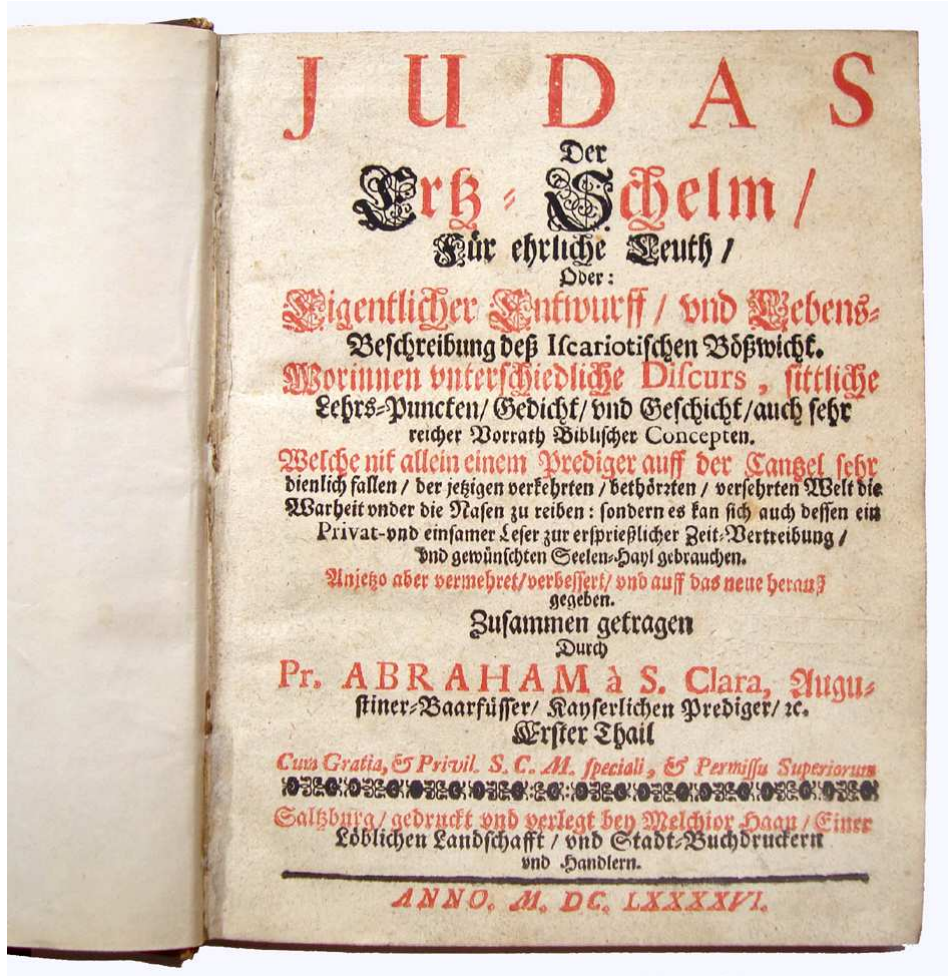 JUDAS
Der
Ertz-Schelm /
Für ehrliche Leuth /
Oder:
Eigentlicher Entwurff / vnd Lebens-
Beschreibung deß Iscariotischen Bößwicht.
Worinnen vnterschiedliche Discurs, sittliche
Lehrs-Puncten/ Gedicht/ vnd Geschicht/ auch sehr
reicher Vorrath Biblischer Concepten.
Welche nit allein einem Prediger auff der Cantzel sehr
dienlich fallen / der jetzigen verkehrten / bethörzten / versehrten Welt die
Warheit vnder die Nasen zu reiben: sondern es kan sich auch dessen ein
Privat-vnd einsamer Leser zur ersprießlicher Zeit-Vertreibung /
vnd gewünschten Seelen-Hayl gebrauchen.
Anjetzo aber vermehret/ verbessert/ vnd auff das neue herauß
gegeben.
Zusammen getragen
Durch
Pr. ABRAHAM à S. Clara, Augu-
stiner-Baarfüsser/ Kayserlichen Prediger/ ꝛc.
Erster Thail
Cum Gratia, & Privil. S. C. M. speciali, & Permissu Superiorum
Saltzburg/ gedruckt vnd verlegt bey Melchior Haan/ Einer
Löblichen Landschafft / vnd Stadt-Buchdruckern
vnd Handlern.
ANNO. M. DC. LXXXXVI.